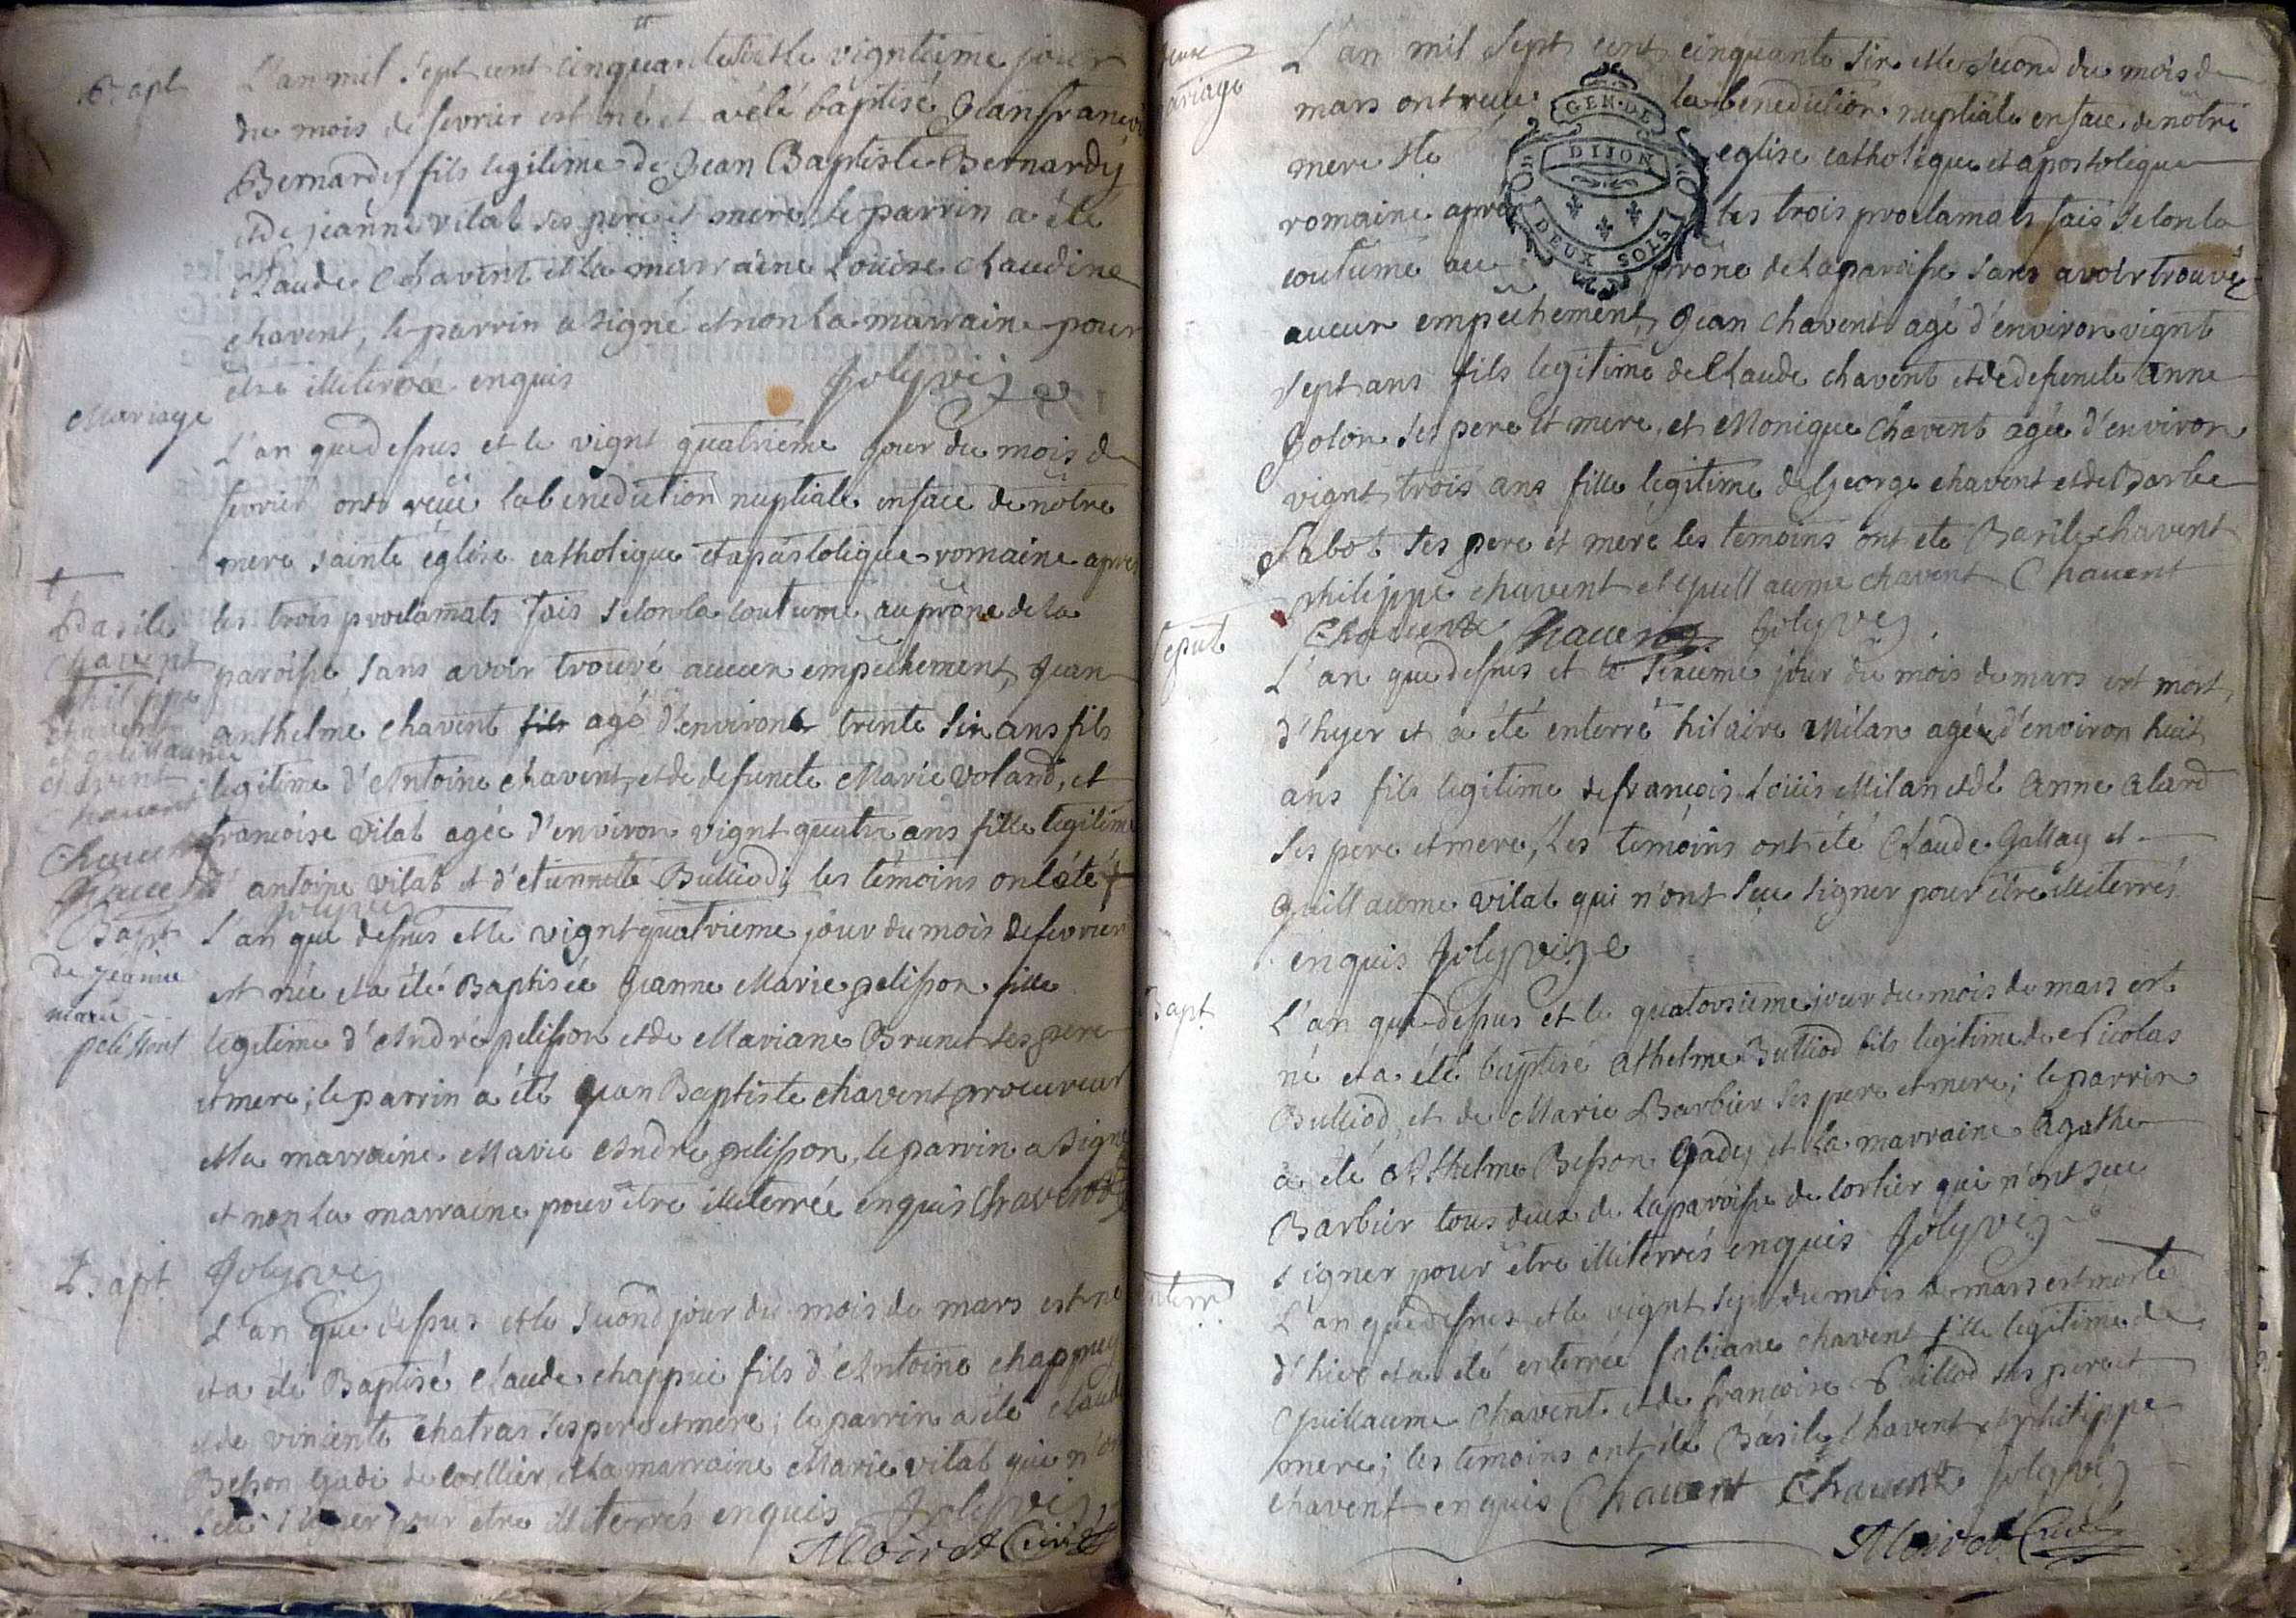 Bapt
L'an mil sept cent cinquante six et le vigntieme jour
du mois de fevrier est né et a été baptisé Jean françois
Bernardy fils legitime de Jean Baptiste Bernardy
et de jeanne vilat ses pere et mere, le parrin a été
Claude Chavent et la marraine Loüise claudine
chavent, le parrin a signé et non la marraine pour
étre illiterrée enquis Joly vic
Mariage
L'an que dessus et le vignt quatrieme jour du mois de
fevrier ont reçüe la benediction nuptiale en face de nôtre
mere sainte église catholique et apostolique romaine apres
les trois proclamats fais selon la coutume au prône de la
paroisse sans avoir trouvé aucun empêchement, Jean
anthelme chavent fils agé d'environ trente six ans fils
legitime d'Antoine chavent, et de defuncte Marie Voland, et
françoise vilat agée d'environ vignt quatre ans fille legitime
d'antoine vilat et d'etiennette Bulliod, les témoins ont été +
+
Basile
Chavent
philippe
chavent
et guillaume
chavent
chavent
Chavent
Chavent
Joly vic
Bapt
de jeanne
marie
pelisson
L'an que dessus et le vignt quatrieme jour du mois de fevrier
est née et a été Baptisée Jeanne Marie pelisson fille
legitime d'André pelisson et de Mariane Brunet ses pere
et mere; le parrin a été Jean Baptiste chavent procureur
et la marraine Marie André pelisson, le parrin a signé
et non la marraine pour être illiterrée enquis Chavent
Joly vic
Bapt
L'an que dessus et le second jour du mois de mars est né
et a été Baptisé Claude chappui fils d'Antoine chappuy
et de vincente chatras ses pere et mere; le parrin a été claude
Besson Gadi de corllier et la marraine Marie vilat qui n'ont
sceu signer pour etre illiterrés enquis Joly vic
Moiret Curé
mariage
L'an mil sept cent cinquante six et le second du mois de
mars ont reçue la benediction nuptiale en face de nôtre
mere ste eglise catholique et apostolique
romaine apres les trois proclamats fais selon la
coutume au prône de la paroisse sans avoir trouvé
aucun empêchement, Jean chavent agé d'environ vignt
sept ans fils legitime de Claude chavent et de defuncte Anne
Golon ses pere et mere, et Monique Chavent agée d'environ
vignt trois ans fille legitime de George chavent et de Barbe
Sabot ses pere et mere les temoins ont eté Basile chavent
philippe chavent et guillaume chavent Chavent
Chavent Chavent Joly vic
GEN. DE
DIJON
DEUX SOLS
sepult
L'an que dessus et le sixieme jour du mois de mars est mort
d'hyer et a été enterré hilaire Milan agé d'environ huit
ans fils legitime de françois Loüis Milan et de Anne Alard
ses pere et mere, les temoins ont été Claude Gallay et
guillaume vilat qui n'ont sçu signer pour être illiterrés
enquis Joly vic
Bapt
L'an que dessus et le quatorsieme jour du mois de mars est
né et a été baptisé Athelme Bulliod fils legitime de Nicolas
Bulliod, et de Marie Barbier ses pere et mere; le parrin
a été Athelme Besson Gady et la marraine Agathe
Barbier tous deux de la paroisse de corlier qui n'ont sceu
signer pour être illiterrés enquis Joly vic
enterr
L'an que dessus et le vignt sept du mois de mars est morte
d'hier et a été enterrée fabiane chavent fille legitime de
Guillaume Chavent et de françoise Bulliod ses pere et
mere; les témoins ont été Basile chavent et philippe
chavent enquis Chavent Chavent Joly vic
Moiret Curé